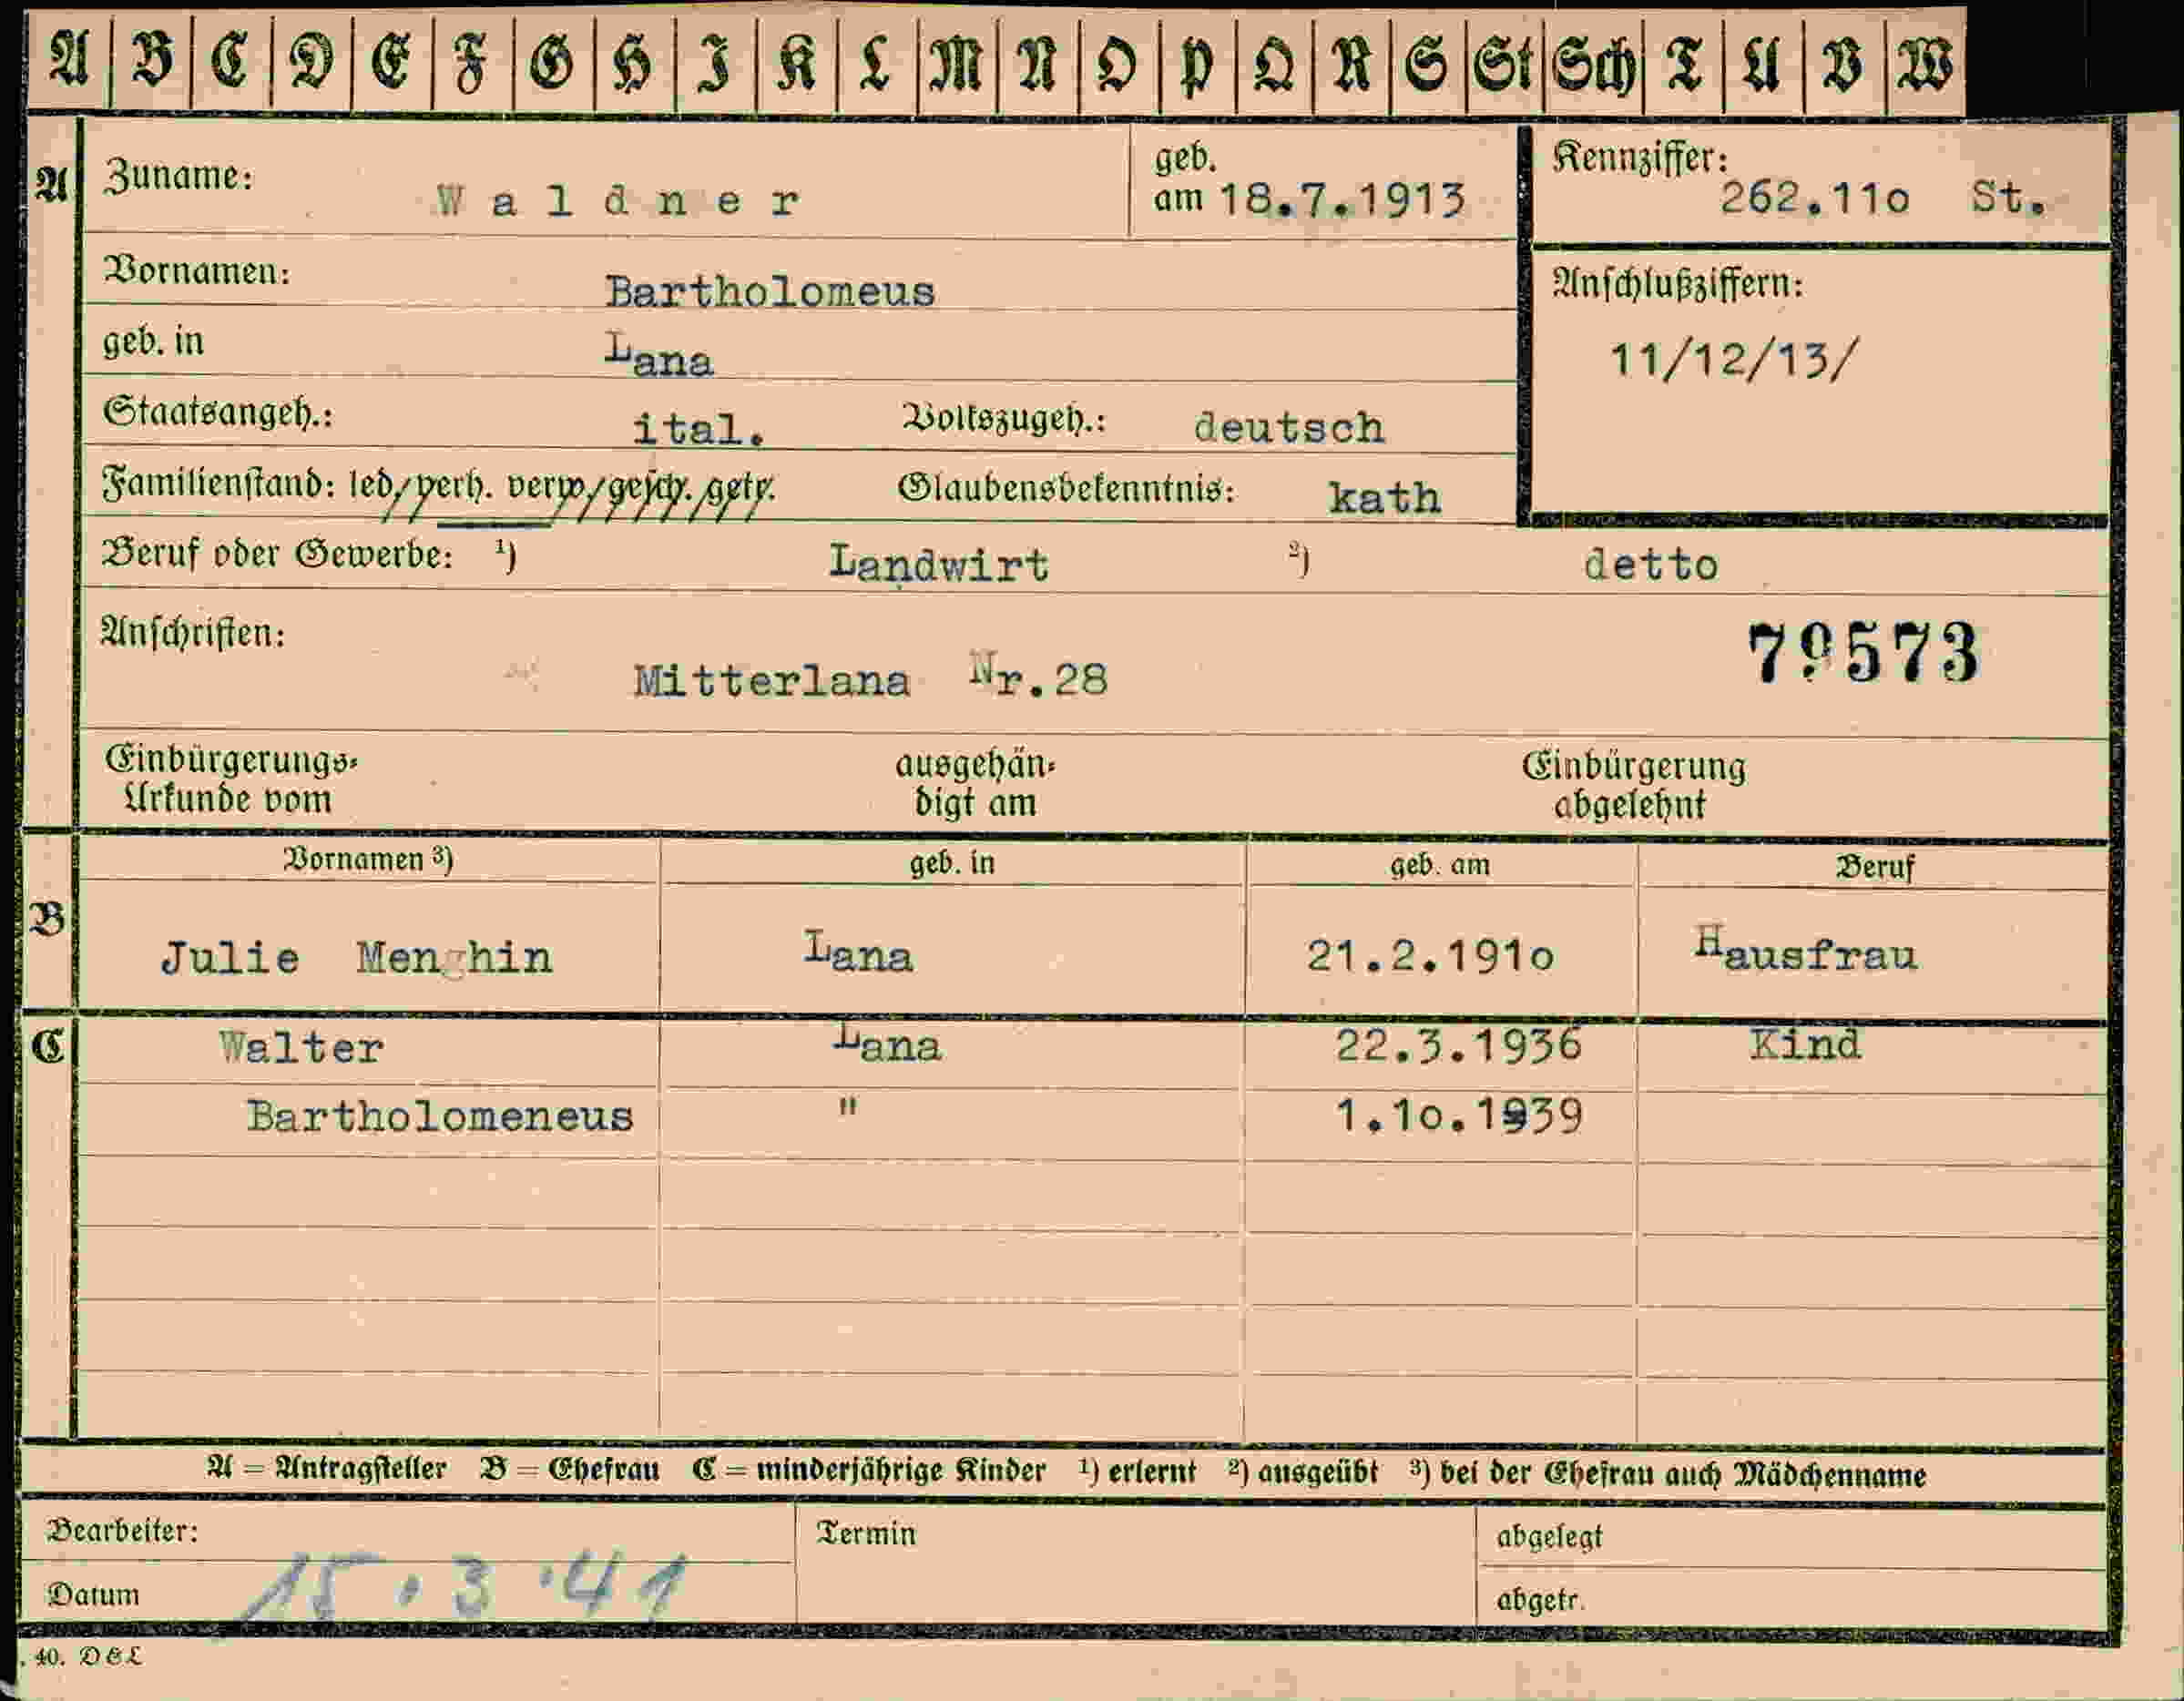 A B C D E F G H I K L M N O P Q R S St Sch T U V W
A Zuname: Waldner geb. am 18.7.1913 Kennziffer: 262.11o St.
Vornamen: Bartholomeus Anschlußziffern:
geb. in Lana 11/12/13/
Staatsangeh.: ital. Volkszugeh.: deutsch
Familienstand: led. verh. verw. gesch. getr. Glaubensbekenntnis: kath
Beruf oder Gewerbe: 1) Landwirt 2) detto
Anschriften: 79573
Mitterlana Nr.28
Einbürgerungs- ausgehän- Einbürgerung
Urkunde vom digt am abgelehnt
Vornamen 3) geb. in geb. am Beruf
B Julie Menghin Lana 21.2.191o Hausfrau
C Walter Lana 22.3.1936 Kind
Bartholomeneus " 1.1o.1939
A = Antragsteller B = Ehefrau C = minderjährige Kinder 1) erlernt 2) ausgeübt 3) bei der Ehefrau auch Mädchenname
Bearbeiter: Termin abgelegt
Datum 15.3.41 abgetr.
. 40. D&L